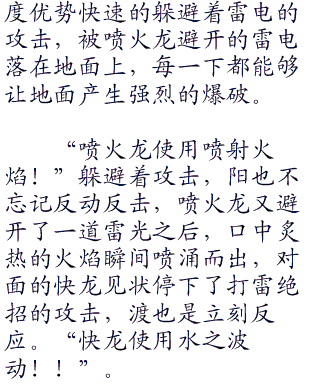 度优势快速的躲避着雷电的
攻击，被喷火龙避开的雷电
落在地面上，每一下都能够
让地面产生强烈的爆破。
“喷火龙使用喷射火
焰！”躲避着攻击，阳也不
忘记反动反击，喷火龙又避
开了一道雷光之后，口中炙
热的火焰瞬间喷涌而出，对
面的快龙见状停下了打雷绝
招的攻击，渡也是立刻反
应。“快龙使用水之波
动！！”。